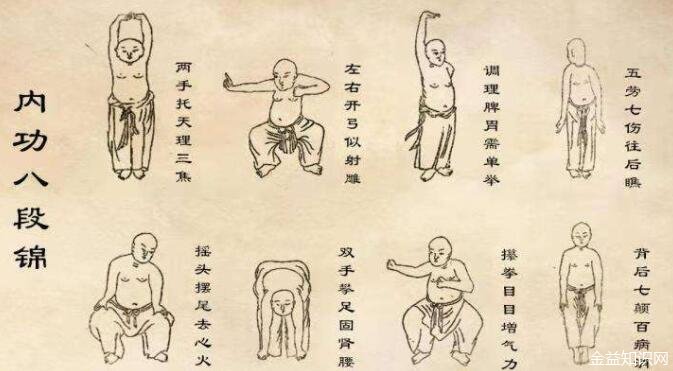 内功八段锦
两手托天理三焦
左右开弓似射雕
调理脾胃需单举
五劳七伤往后瞧
摇头摆尾去心火
双手攀足固肾腰
攥拳目目增气力
背后七颠百病
金益知识网